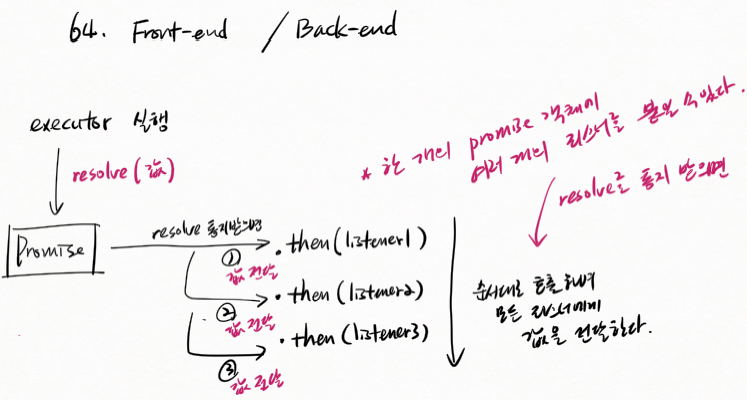 64. Front-end / Back-end
executor 실행
resolve(값)
Promise
resolve 통지받으면
① 값 전달
② 값 전달
③ 값 전달
.then(listener1)
.then(listener2)
.then(listener3)
* 한 개의 promise 객체에
여러 개의 리스너를 붙일 수 있다.
resolve를 통지 받으면
순서대로 호출하여
모든 리스너에게
값을 전달한다.